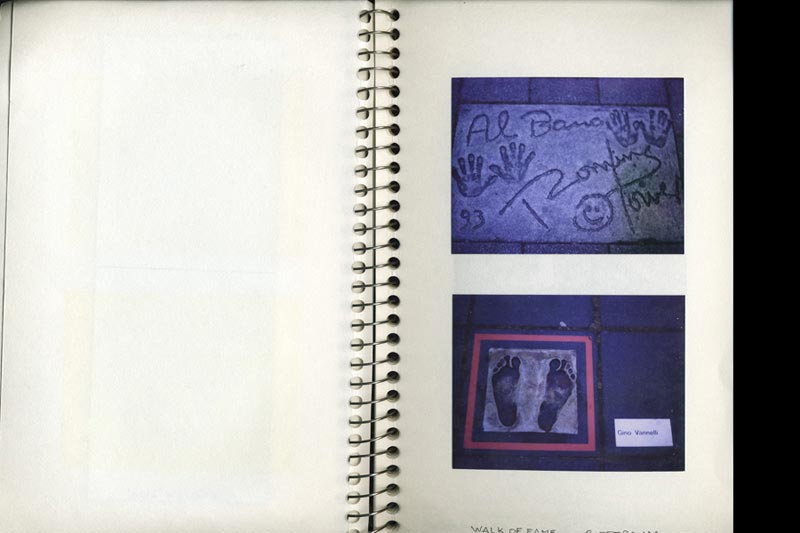 Al Bano
Romina
Power
93
Gino Vannelli
WALK OF FAME